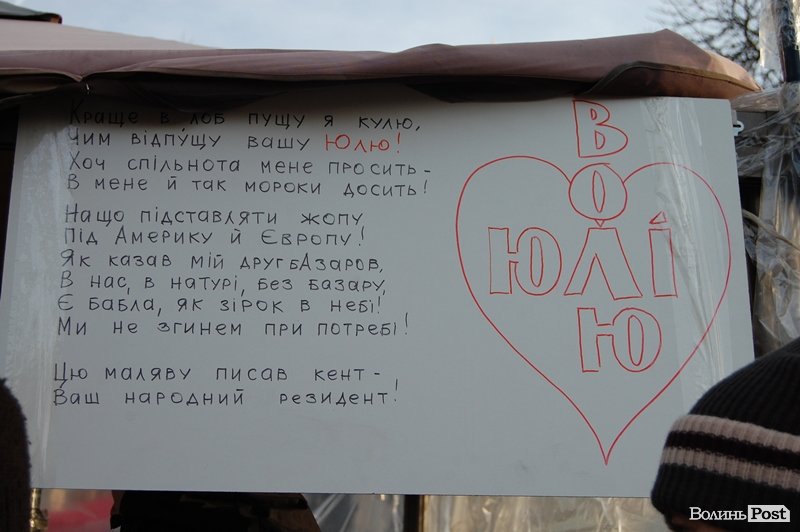 Краще в лоб пущу я кулю,
Чим відпу́щу вашу Юлю!
Хоч спільнота мене просить -
В мене й так мороки досить!
Нащо підставляти жопу
Під Америку й Європу!
Як казав мій друг бАзаров,
В нас, в натурі, без базару,
Є бабла, як зірок в небі!
Ми не згинем при потребі!
Цю маляву писав кент -
Ваш народний резидент!
В
О
ЮЛІ
Ю
ВолиньPost